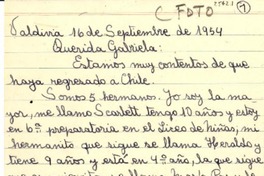 C FOTO 7
Valdivia 16 de Septiembre de 1954
Querida Gabriela:
Estamos muy contentos de que
haya regresado a Chile.
Somos 5 hermanos. Yo soy la ma-
yor, me llamo Scarlett tengo 10 años y estoy
en 6ª preparatoria en el Liceo de niñas, mi
hermanito que sigue se llama Heraldo y
tiene 9 años y está en 4º año, la que sigue